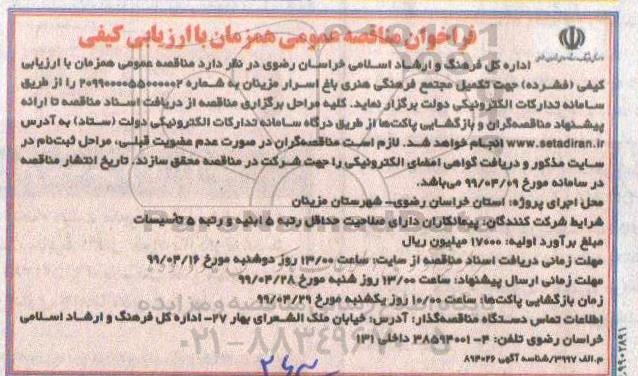 فراخوان مناقصه عمومی همزمان با ارزیابی کیفی
اداره کل فرهنگ و ارشاد اسلامی خراسان رضوی در نظر دارد مناقصه عمومی همزمان با ارزیابی
کیفی (فشرده) جهت تکمیل مجتمع فرهنگی هنری باغ اسرار مزینان به شماره ۲۰۹۹۰۰۰۰۵۵۰۰۰۰۰۲ را از طریق
سامانه تدارکات الکترونیکی دولت برگزار نماید. کلیه مراحل برگزاری مناقصه از دریافت اسناد مناقصه تا ارائه
پیشنهاد مناقصه‌گران و بازگشایی پاکت‌ها از طریق درگاه سامانه تدارکات الکترونیکی دولت (ستاد) به آدرس
www.setadiran.ir انجام خواهد شد. لازم است مناقصه‌گران در صورت عدم عضویت قبلی، مراحل ثبت‌نام در
سایت مذکور و دریافت گواهی امضای الکترونیکی را جهت شرکت در مناقصه محقق سازند. تاریخ انتشار مناقصه
در سامانه مورخ ۹۹/۰۴/۰۹ می‌باشد.
محل اجرای پروژه: استان خراسان رضوی– شهرستان مزینان
شرایط شرکت کنندگان: پیمانکاران دارای صلاحیت حداقل رتبه ۵ ابنیه و رتبه ۵ تأسیسات
مبلغ برآورد اولیه: ۱۷۰۰۰ میلیون ریال
مهلت زمانی دریافت اسناد مناقصه از سایت: ساعت ۱۳/۰۰ روز دوشنبه مورخ ۹۹/۰۴/۱۶
مهلت زمانی ارسال پیشنهاد: ساعت ۱۳/۰۰ روز شنبه مورخ ۹۹/۰۴/۲۸
زمان بازگشایی پاکت‌ها: ساعت ۱۰/۰۰ روز یکشنبه مورخ ۹۹/۰۴/۲۹
اطلاعات تماس دستگاه مناقصه‌گذار: آدرس: خیابان ملک الشعرای بهار ۲۷– اداره کل فرهنگ و ارشاد اسلامی
خراسان رضوی تلفن: ۴- ۳۸۵۹۴۰۰۱ داخلی ۱۳۱
م.الف ۳۹۹۷/شناسه آگهی ۸۹۴۰۲۶
۹۹۰۲۸۹۱
۰۲۱-۸۸۳۴۹۶۷۰-۵